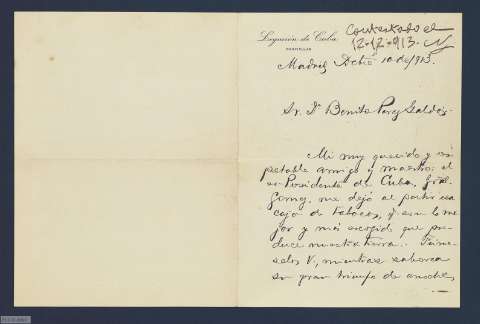 Legación de Cuba
Contestado el
12-12-913.
Madrid Dcbre 10 de 1913.
Sr. Dn Benito Perez Galdós.
Mi muy querido y res
petable amigo y maestro: el
ex-Presidente de Cuba, Gral.
Gomez, me dejó al partir esa
caja de tabacos, y son lo me
jor y más escogido que pro
duce nuestra tierra.
selos V., mientras saborea
su gran triunfo de anoche,